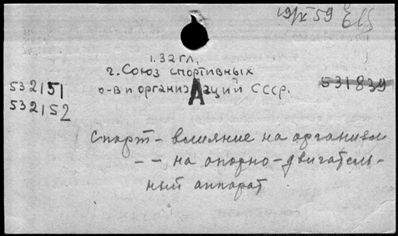 19/IX 59
1.32 гл,
г. Союз спортивных
532151 о-в и организаций СССР. 531839
532152
А
Спорт - влияние на организм
- - , на опорно-двигатель-
ный аппарат